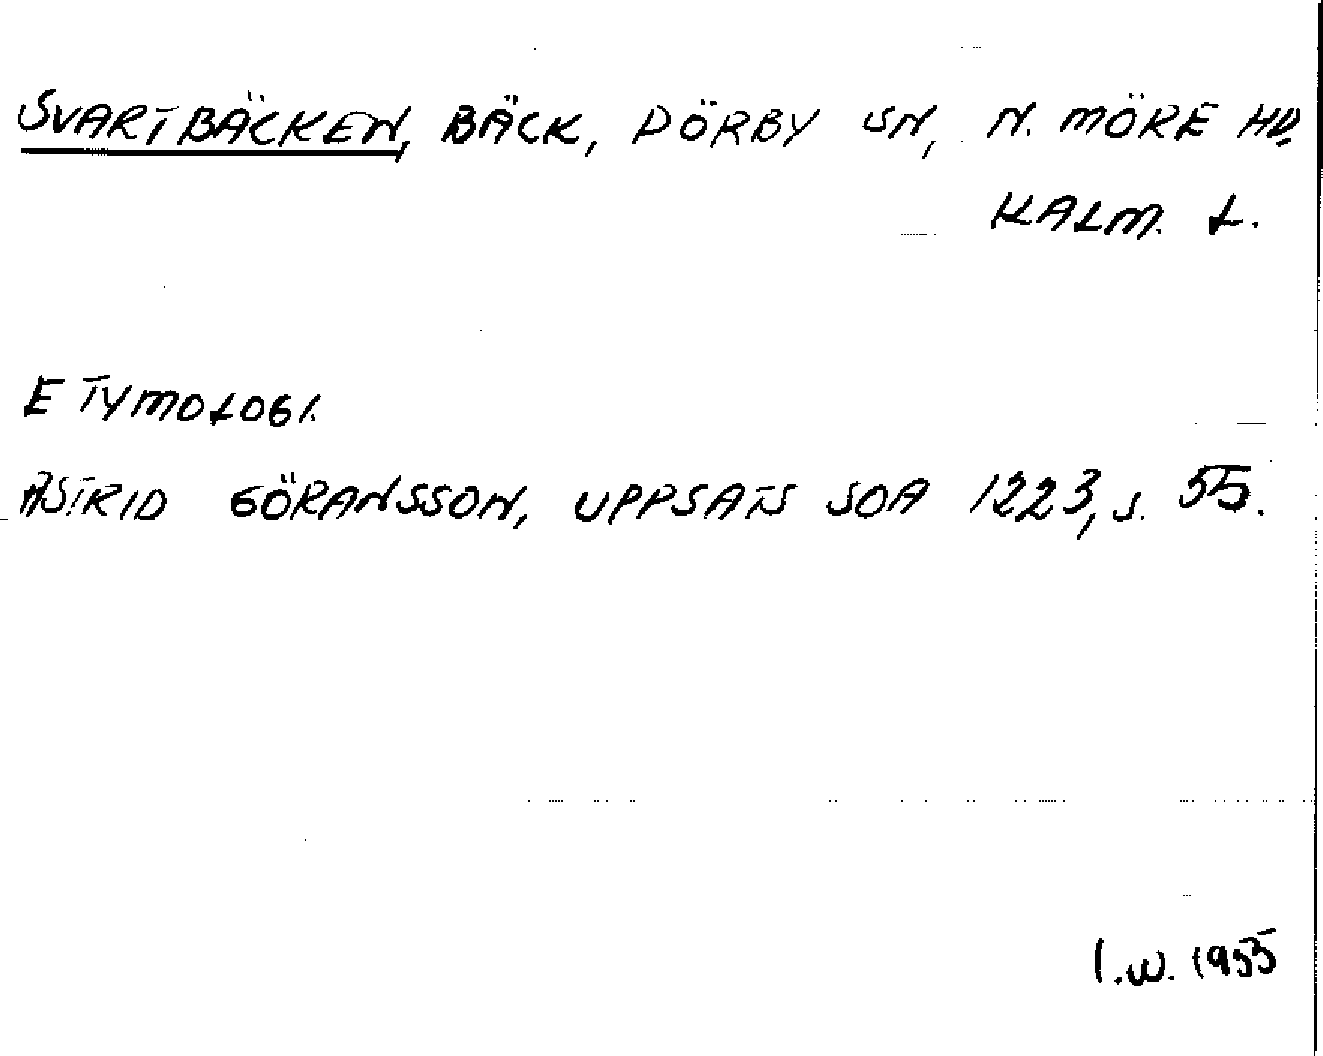 SVARTBÄCKEN, BÄCK, DÖRBY SN, N. MÖRE HD,
KALM. L.
ETYMOLOGI.
ASTRID GÖRANSSON, UPPSATS SOA 1223, S. 55.
I.W. 1955